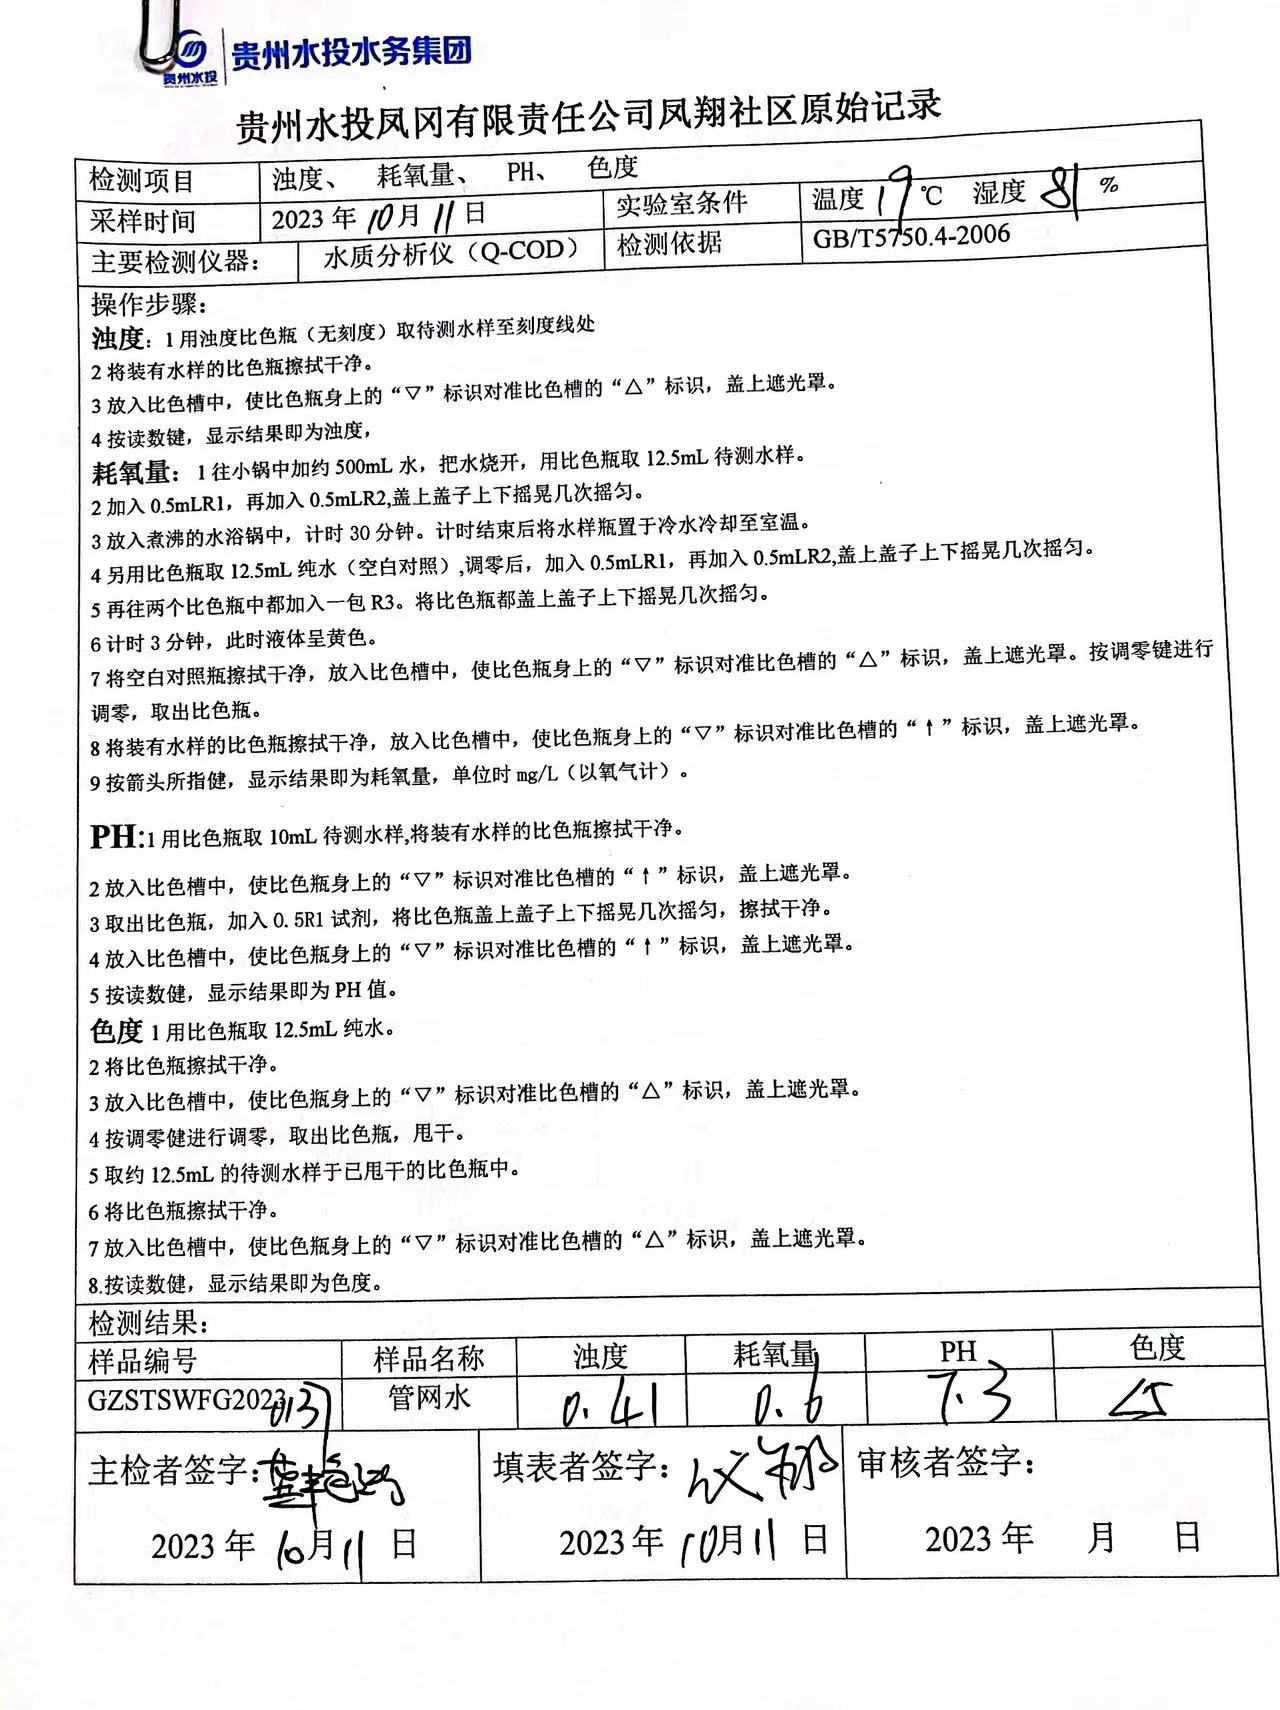 贵州水投
贵州水投水务集团
贵州水投凤冈有限责任公司凤翔社区原始记录
检测项目 浊度、 耗氧量、 PH、 色度
采样时间 2023 年 10 月 11 日 实验室条件 温度 19 ℃ 湿度 81 %
主要检测仪器： 水质分析仪（Q-COD） 检测依据 GB/T5750.4-2006
操作步骤：
浊度：1 用浊度比色瓶（无刻度）取待测水样至刻度线处
2 将装有水样的比色瓶擦拭干净。
3 放入比色槽中，使比色瓶身上的“▽”标识对准比色槽的“△”标识，盖上遮光罩。
4 按读数键，显示结果即为浊度，
耗氧量：1 往小锅中加约 500mL 水，把水烧开，用比色瓶取 12.5mL 待测水样。
2 加入 0.5mLR1，再加入 0.5mLR2,盖上盖子上下摇晃几次摇匀。
3 放入煮沸的水浴锅中，计时 30 分钟。计时结束后将水样瓶置于冷水冷却至室温。
4 另用比色瓶取 12.5mL 纯水（空白对照）,调零后，加入 0.5mLR1，再加入 0.5mLR2,盖上盖子上下摇晃几次摇匀。
5 再往两个比色瓶中都加入一包 R3。将比色瓶都盖上盖子上下摇晃几次摇匀。
6 计时 3 分钟，此时液体呈黄色。
7 将空白对照瓶擦拭干净，放入比色槽中，使比色瓶身上的“▽”标识对准比色槽的“△”标识，盖上遮光罩。按调零键进行
调零，取出比色瓶。
8 将装有水样的比色瓶擦拭干净，放入比色槽中，使比色瓶身上的“▽”标识对准比色槽的“↑”标识，盖上遮光罩。
9 按箭头所指健，显示结果即为耗氧量，单位时 mg/L（以氧气计）。
PH:1 用比色瓶取 10mL 待测水样,将装有水样的比色瓶擦拭干净。
2 放入比色槽中，使比色瓶身上的“▽”标识对准比色槽的“↑”标识，盖上遮光罩。
3 取出比色瓶，加入 0.5R1 试剂，将比色瓶盖上盖子上下摇晃几次摇匀，擦拭干净。
4 放入比色槽中，使比色瓶身上的“▽”标识对准比色槽的“↑”标识，盖上遮光罩。
5 按读数健，显示结果即为 PH 值。
色度 1 用比色瓶取 12.5mL 纯水。
2 将比色瓶擦拭干净。
3 放入比色槽中，使比色瓶身上的“▽”标识对准比色槽的“△”标识，盖上遮光罩。
4 按调零健进行调零，取出比色瓶，甩干。
5 取约 12.5mL 的待测水样于已甩干的比色瓶中。
6 将比色瓶擦拭干净。
7 放入比色槽中，使比色瓶身上的“▽”标识对准比色槽的“△”标识，盖上遮光罩。
8.按读数健，显示结果即为色度。
检测结果：
样品编号 样品名称 浊度 耗氧量 PH 色度
GZSTSWFG2023 0137 管网水 0.41 0.6 7.3 <5
主检者签字： 填表者签字： 审核者签字：
2023 年 10 月 11 日 2023 年 10 月 11 日 2023 年 月 日